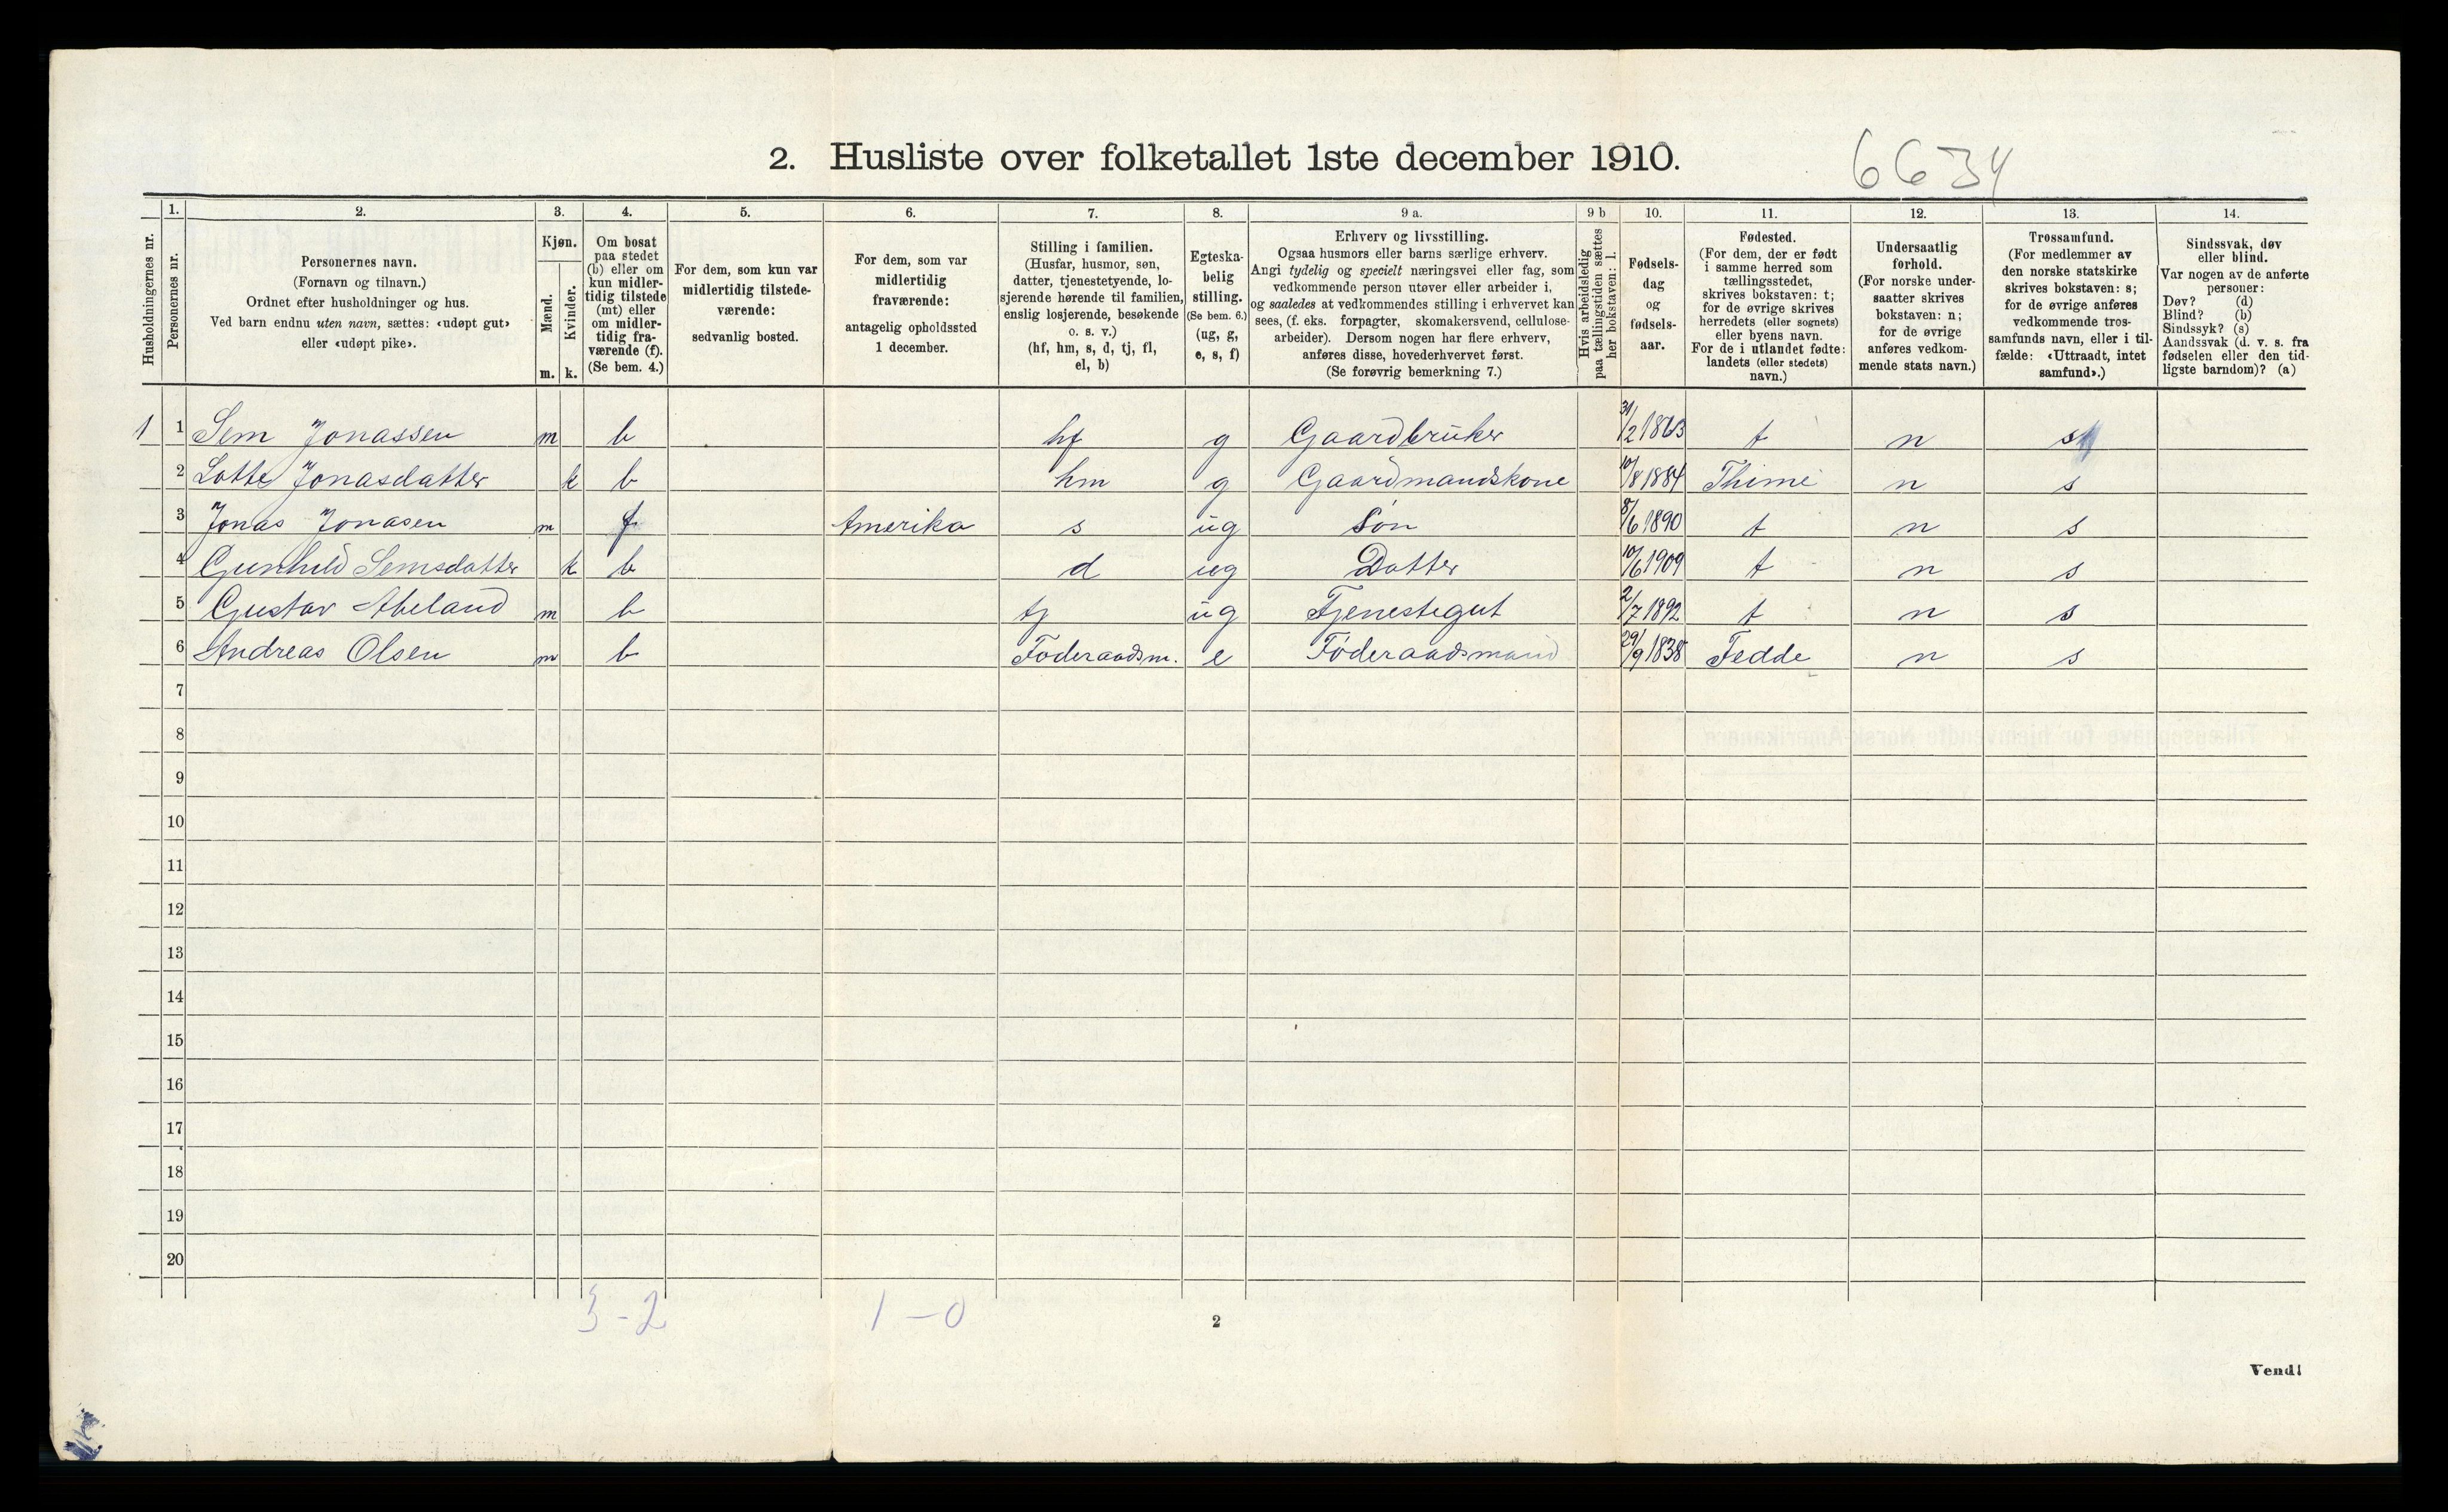 2. Husliste over folketallet 1ste december 1910.
6634
Husholdningernes nr.
1. Personernes nr.
2. Personernes navn. (Fornavn og tilnavn.) Ordnet efter husholdninger og hus. Ved barn endnu uten navn, sættes: «udøpt gut» eller «udøpt pike».
3. Kjøn. Mænd. m. Kvinder. k.
4. Om bosat paa stedet (b) eller om kun midlertidig tilstede (mt) eller om midlertidig fraværende (f). (Se bem. 4.)
5. For dem, som kun var midlertidig tilstedeværende: sedvanlig bosted.
6. For dem, som var midlertidig fraværende: antagelig opholdssted 1 december.
7. Stilling i familien. (Husfar, husmor, søn, datter, tjenestetyende, losjerende hørende til familien, enslig losjerende, besøkende o. s. v.) (hf, hm, s, d, tj, fl, el, b)
8. Egteskabelig stilling. (Se bem. 6.) (ug, g, e, s, f)
9 a. Erhverv og livsstilling. Ogsaa husmors eller barns særlige erhverv. Angi tydelig og specielt næringsvei eller fag, som vedkommende person utøver eller arbeider i, og saaledes at vedkommendes stilling i erhvervet kan sees, (f. eks. forpagter, skomakersvend, cellulosearbeider). Dersom nogen har flere erhverv, anføres disse, hovederhvervet først. (Se forøvrig bemerkning 7.)
9 b Hvis arbeidsledig paa tællingstiden sættes her bokstaven: l.
10. Fødselsdag og fødselsaar.
11. Fødested. (For dem, der er født i samme herred som tællingsstedet, skrives bokstaven: t; for de øvrige skrives herredets (eller sognets) eller byens navn. For de i utlandet fødte: landets (eller stedets) navn.)
12. Undersaatlig forhold. (For norske undersaatter skrives bokstaven: n; for de øvrige anføres vedkommende stats navn.)
13. Trossamfund. (For medlemmer av den norske statskirke skrives bokstaven: s; for de øvrige anføres vedkommende trossamfunds navn, eller i tilfælde: «Uttraadt, intet samfund».)
14. Sindssvak, døv eller blind. Var nogen av de anførte personer: Døv? (d) Blind? (b) Sindssyk? (s) Aandssvak (d. v. s. fra fødselen eller den tidligste barndom)? (a)
1 1 Sem Jonassen m b hf g Gaardbruker 31/2 1863 t n s
2 Lotte Jonasdatter k b hm g Gaardmandskone 10/8 1884 Thime n s
3 Jonas Jonasen m f Amerika s ug Søn 8/6 1890 t n s
4 Gunhild Semsdatter k b d ug Datter 10/6 1909 t n s
5 Gustav Abeland m b tj ug Tjenestegut 2/7 1892 t n s
6 Andreas Olsen m b Føderaadsm. e Føderaadsmand 29/9 1838 Fedde n s
7
8
9
10
11
12
13
14
15
16
17
18
19
20
3-2 1-0
2
Vend!